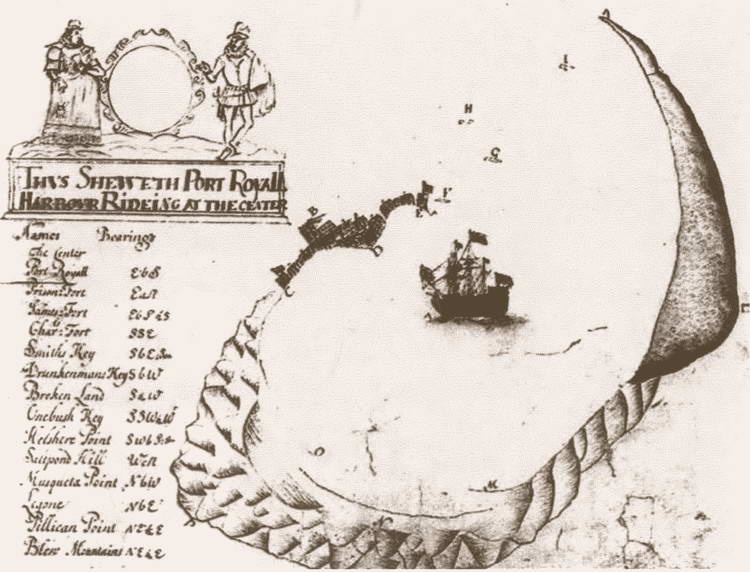 THVS SHEWETH PORT ROYALL
HARBOUR RIDEING AT THE CENTER
Names Bearings
The Center
Port Royall E b S
Prison: Fort East
James: Fort
Char: Fort S S E
Smiths Key S b E
Drunkenmans Key S b W
Broken Land S & W
Onebush Key
Helshere Point
Saltpond Hill West
Musqueta Point N b W
Legone N b E
Pillican Point N E & E
Blew Mountains N E & E
I
H
G
F
E
B
D
C
O
M
N
P